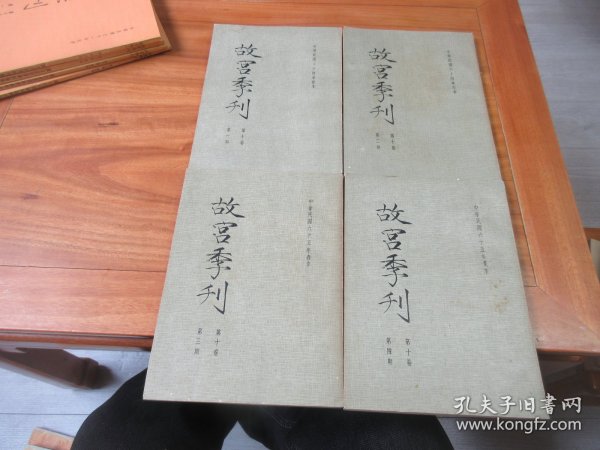 故宮季刊
第十卷
第一期
故宮季刊
第十卷
第二期
中華民國六十五年春季
故宮季刊
第十卷
第三期
中華民國六十五年夏季
故宮季刊
第十卷
第四期
孔夫子旧书网
www.kongfz.com